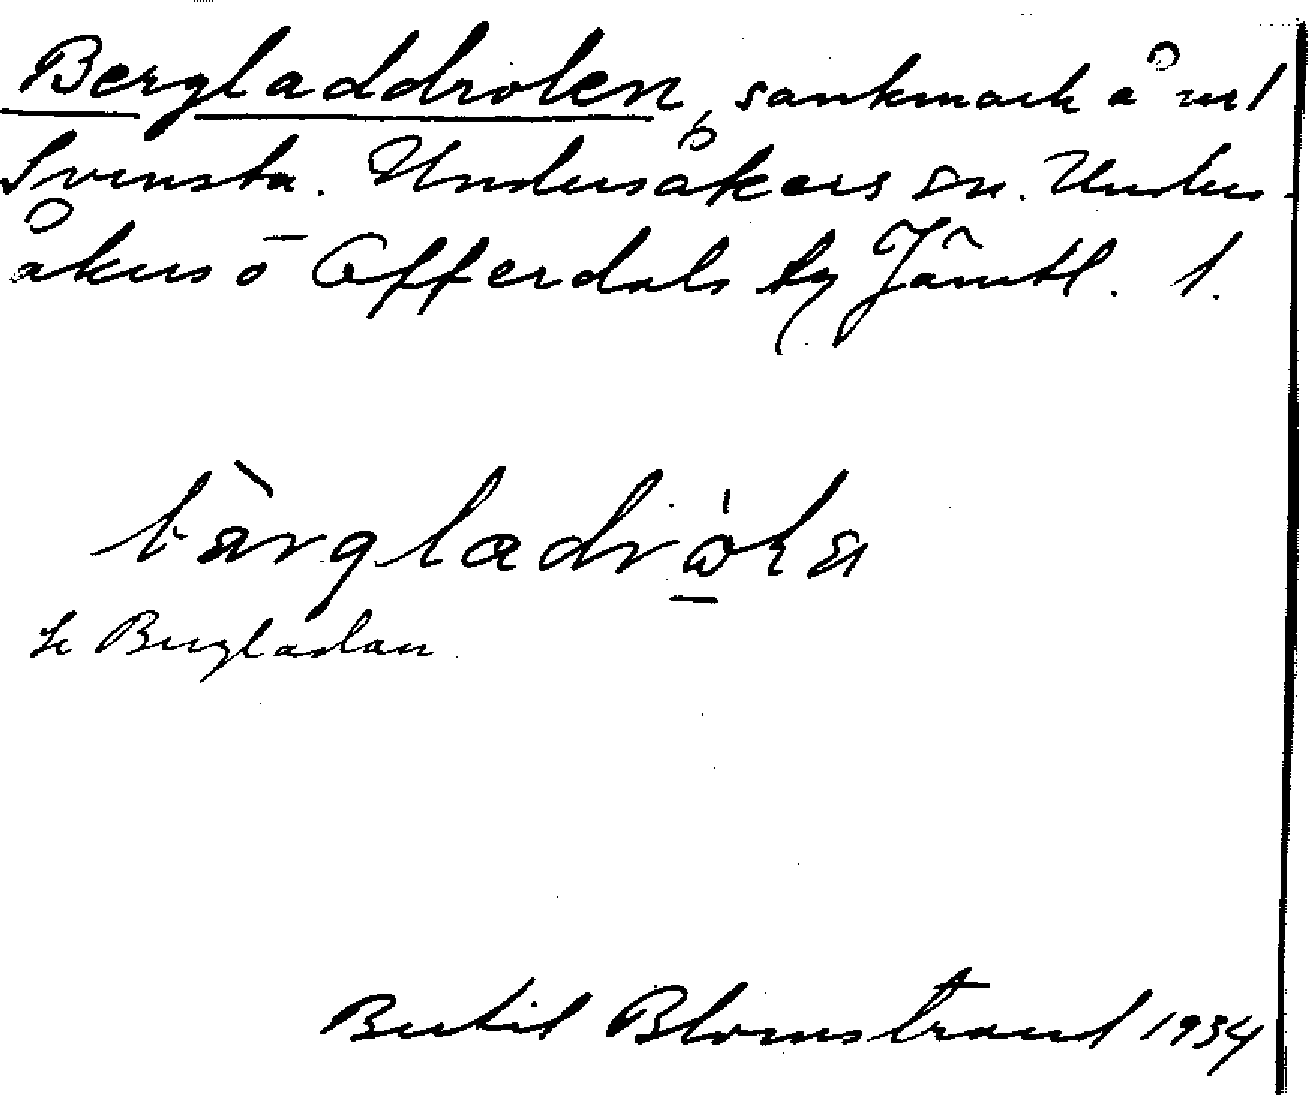 Bergladdrolen, sankmark å
Svensta. Undersåkers sn. Unders-
åkers o Offerdals tg Jämtl. l.
Se Bergladan.
Bertil Blomstrand 1934